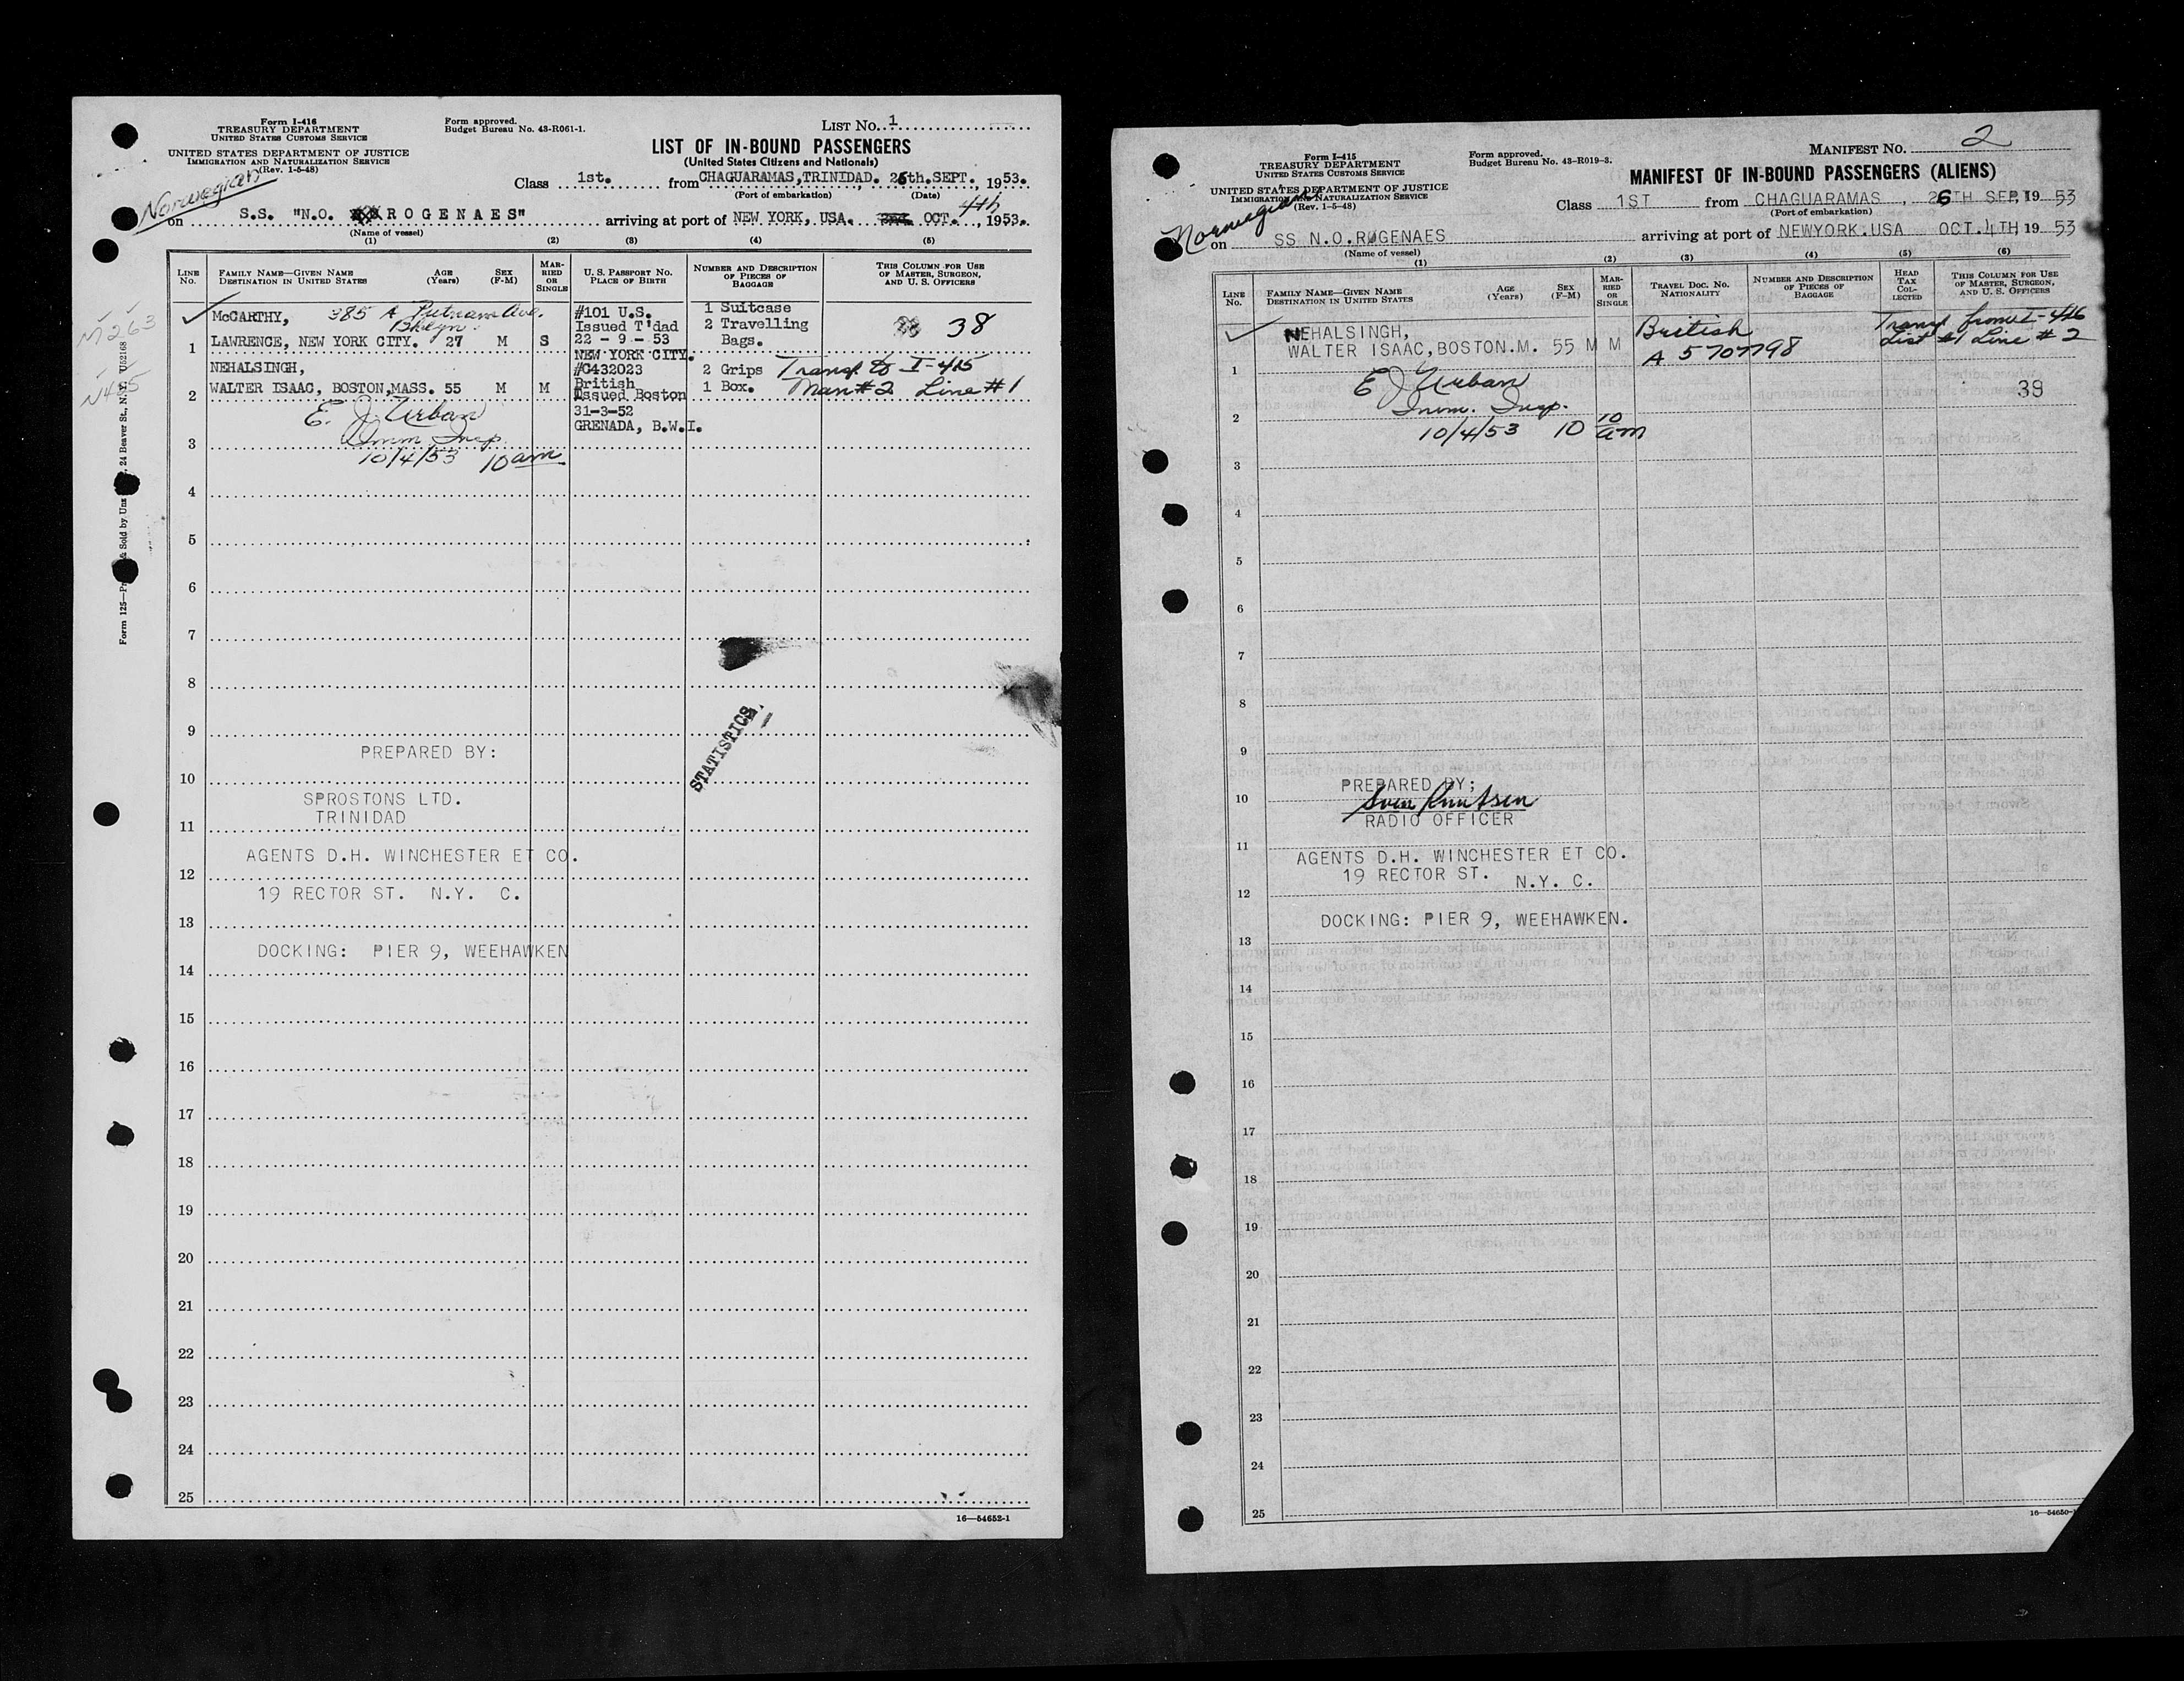 Form I-416
TREASURY DEPARTMENT
UNITED STATES CUSTOMS SERVICE
UNITED STATES DEPARTMENT OF JUSTICE
IMMIGRATION AND NATURALIZATION SERVICE
(Rev. 1-5-48)
Form approved.
Budget Bureau No. 43-R061-1.
LIST NO. 1
LIST OF IN-BOUND PASSENGERS
(United States Citizens and Nationals)
Class 1st. from CHAGUARAMAS, TRINIDAD. 26th. SEPT., 1953.
(Port of embarkation) (Date)
Norwegian
on S.S. "N.O. ROGENAES" arriving at port of NEW YORK, USA. OCT. 4th, 1953.
(Name of vessel)
(1) (2) (3) (4) (5)
LINE No.
FAMILY NAME—GIVEN NAME
DESTINATION IN UNITED STATES
AGE (Years)
SEX (F-M)
MARRIED OR SINGLE
U. S. PASSPORT NO.
PLACE OF BIRTH
NUMBER AND DESCRIPTION OF PIECES OF BAGGAGE
THIS COLUMN FOR USE OF MASTER, SURGEON, AND U. S. OFFICERS
M263
N425
1
McCARTHY, 385 A Putnam Ave.
Bklyn.
LAWRENCE, NEW YORK CITY. 27 M S
#101 U.S.
Issued T'dad
22 - 9 - 53
NEW YORK CITY.
1 Suitcase
2 Travelling
Bags.
38
2
NEHALSINGH,
WALTER ISAAC, BOSTON, MASS. 55 M M
#C432023
British
Issued Boston
31-3-52
GRENADA, B.W.I.
2 Grips
1 Box.
Transf to I-415
Man #2 Line #1
E. J. Urban
Imm Insp.
10/4/53 10 am
3
4
5
6
7
8
9
STATISTICS
PREPARED BY:
10
SPROSTONS LTD.
TRINIDAD
11
AGENTS D.H. WINCHESTER ET CO.
12
19 RECTOR ST. N.Y. C.
13
DOCKING: PIER 9, WEEHAWKEN
14
15
16
17
18
19
20
21
22
23
24
25
16—54652-1
Form I-415
TREASURY DEPARTMENT
UNITED STATES CUSTOMS SERVICE
UNITED STATES DEPARTMENT OF JUSTICE
IMMIGRATION AND NATURALIZATION SERVICE
(Rev. 1-5-48)
Form approved.
Budget Bureau No. 43-R019-3.
MANIFEST NO. 2
MANIFEST OF IN-BOUND PASSENGERS (ALIENS)
Class 1ST from CHAGUARAMAS, 26TH SEPT 1953
(Port of embarkation)
Norwegian
on SS N.O.ROGENAES arriving at port of NEWYORK.USA OCT.4TH 1953
(Name of vessel)
(1) (2) (3) (4) (5) (6)
LINE No.
FAMILY NAME—GIVEN NAME
DESTINATION IN UNITED STATES
AGE (Years)
SEX (F-M)
MARRIED OR SINGLE
TRAVEL DOC. NO.
NATIONALITY
NUMBER AND DESCRIPTION OF PIECES OF BAGGAGE
HEAD TAX COLLECTED
THIS COLUMN FOR USE OF MASTER, SURGEON, AND U. S. OFFICERS
NEHALSINGH,
WALTER ISAAC, BOSTON.M. 55 M M
British
A 5707798
Transf from I-416
List #1 Line #2
1
E J Urban
Imm. Insp.
10/4/53 10 10 am
39
2
3
4
5
6
7
8
9
PREPARED BY;
10
RADIO OFFICER
11
AGENTS D.H. WINCHESTER ET CO.
19 RECTOR ST. N.Y. C.
12
DOCKING: PIER 9, WEEHAWKEN.
13
14
15
16
17
18
19
20
21
22
23
24
25